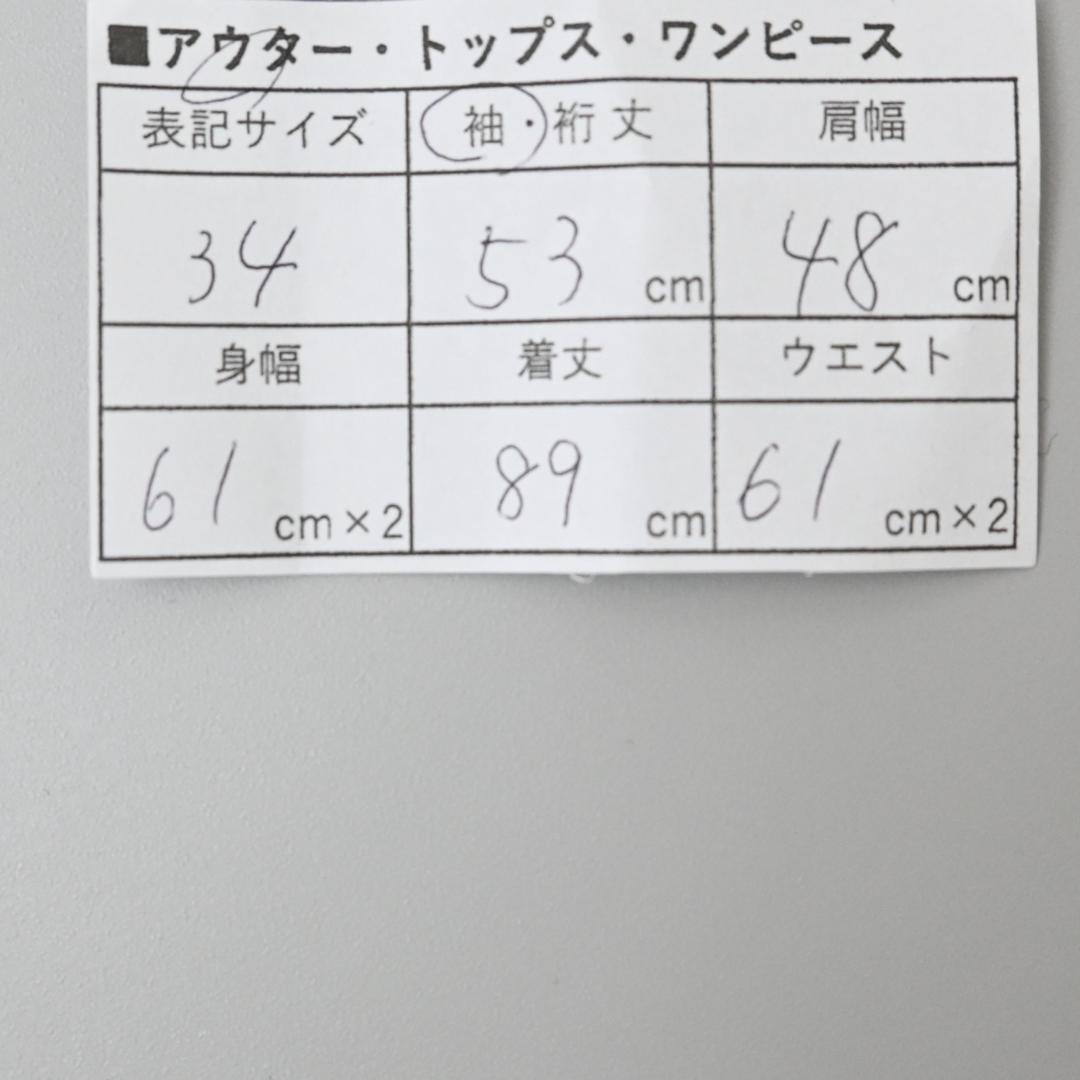 ■アウター・トップス・ワンピース
表記サイズ 袖・裄丈 肩幅
34 53 cm 48 cm
身幅 着丈 ウエスト
61 cm×2 89 cm 61 cm×2